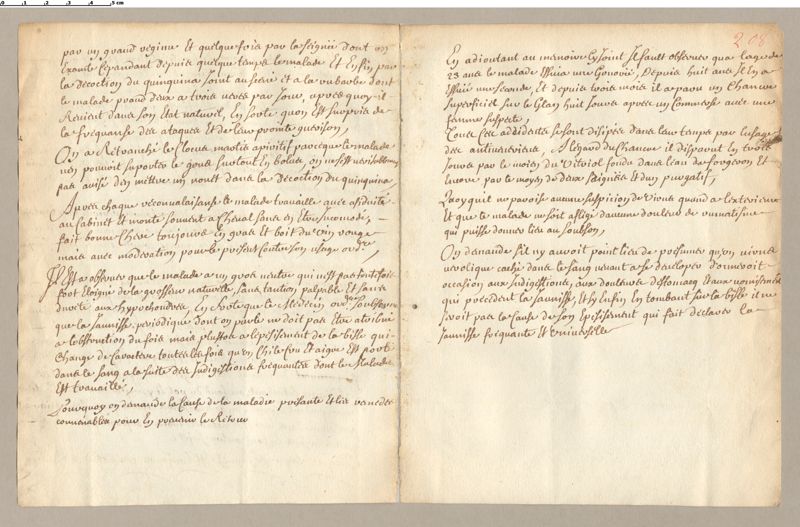 0 1 2 3 4 5 cm
par un grand regime et quelque fois par la seignée dont on
Exante cependant depuis quelque temps le malade et Enfin, par
la decoction du quinquina joint au et a la rubarbe dont
le malade prend deux a trois verres par Jour, apres quoy il
Revient dans son Etat naturel, En sorte quon est surpris de
la frequanse des ataques et de leur promte guerison,
On a Retranché le apivitif parce que le malade
nen pouvoit suporter le gout surtout En bolus, on
pas avisé den mettre un nouet dans la decoction du quinquina,
Apres chaque le malade travaille avec assiduité
au Cabinet et monte souvent a cheval sans en etre incomodé,
fait bonne chere toujours En gras et boit du vin rouge
mais avec moderation pour le present contre son usage ord.re,
Il Est a observer que le malade a un gros ventre qui nest pas toutes fois
fort Eloigné de la grosseur naturelle, sans tantion palpable et sans
dureté aux hypochondres, En sorte que le Medecin ord.re
que la jaunisse periodique dont on parle ne doit pas etre atribué
a lobstruction du foie mais plustost a lepesissement de la bille qui
change de caractere toutes les fois quun chile cru et aigre Est porté
dans le sang a la suitte des Indigestions frequantes dont le Malade
Est travaillé,
Pourquoy on demande la cause de la maladie presante et les remedes
convenables pour En prevenir le Retour
208
En adioutant au memoire cy Joint Il faut observer qua lage de
23 ans le malade Essuia une Gonorée, Depuis huit ans Il En a
Essuié une seconde, et depuis trois mois il a paru un chancre
superficiel sur le Glan huit Jours apres un Commerse avec une
femme suspecte,
Tous ces accidents se sont disipés dans leur temps par lusage
des antiveneriens, A legard du chancre il disparut En trois
Jours par le moien du Vitriol fondu dans leau de forgeron et
Encore par le moyen de deux seignées et dun purgatif,
Quoy quil ne paroise aucune suspicion de Virus quand a lexterieur
Et que le malade ne soit affligé daucune douleur de rumatisme
qui puisse donner lieu au soubson,
On demande sil ny auroit point lieu de presumer quun virus
verolique caché dans le sang venant a se developer donneroit
occasion aux Indigestions, aux douleurs destomacq et aux vomissements
qui precedent la jaunisse, et sy Enfin En tombant sur la bille il ne
seroit pas la cause de son Epesissement qui fait declarer la
jaunisse frequante et Universelle